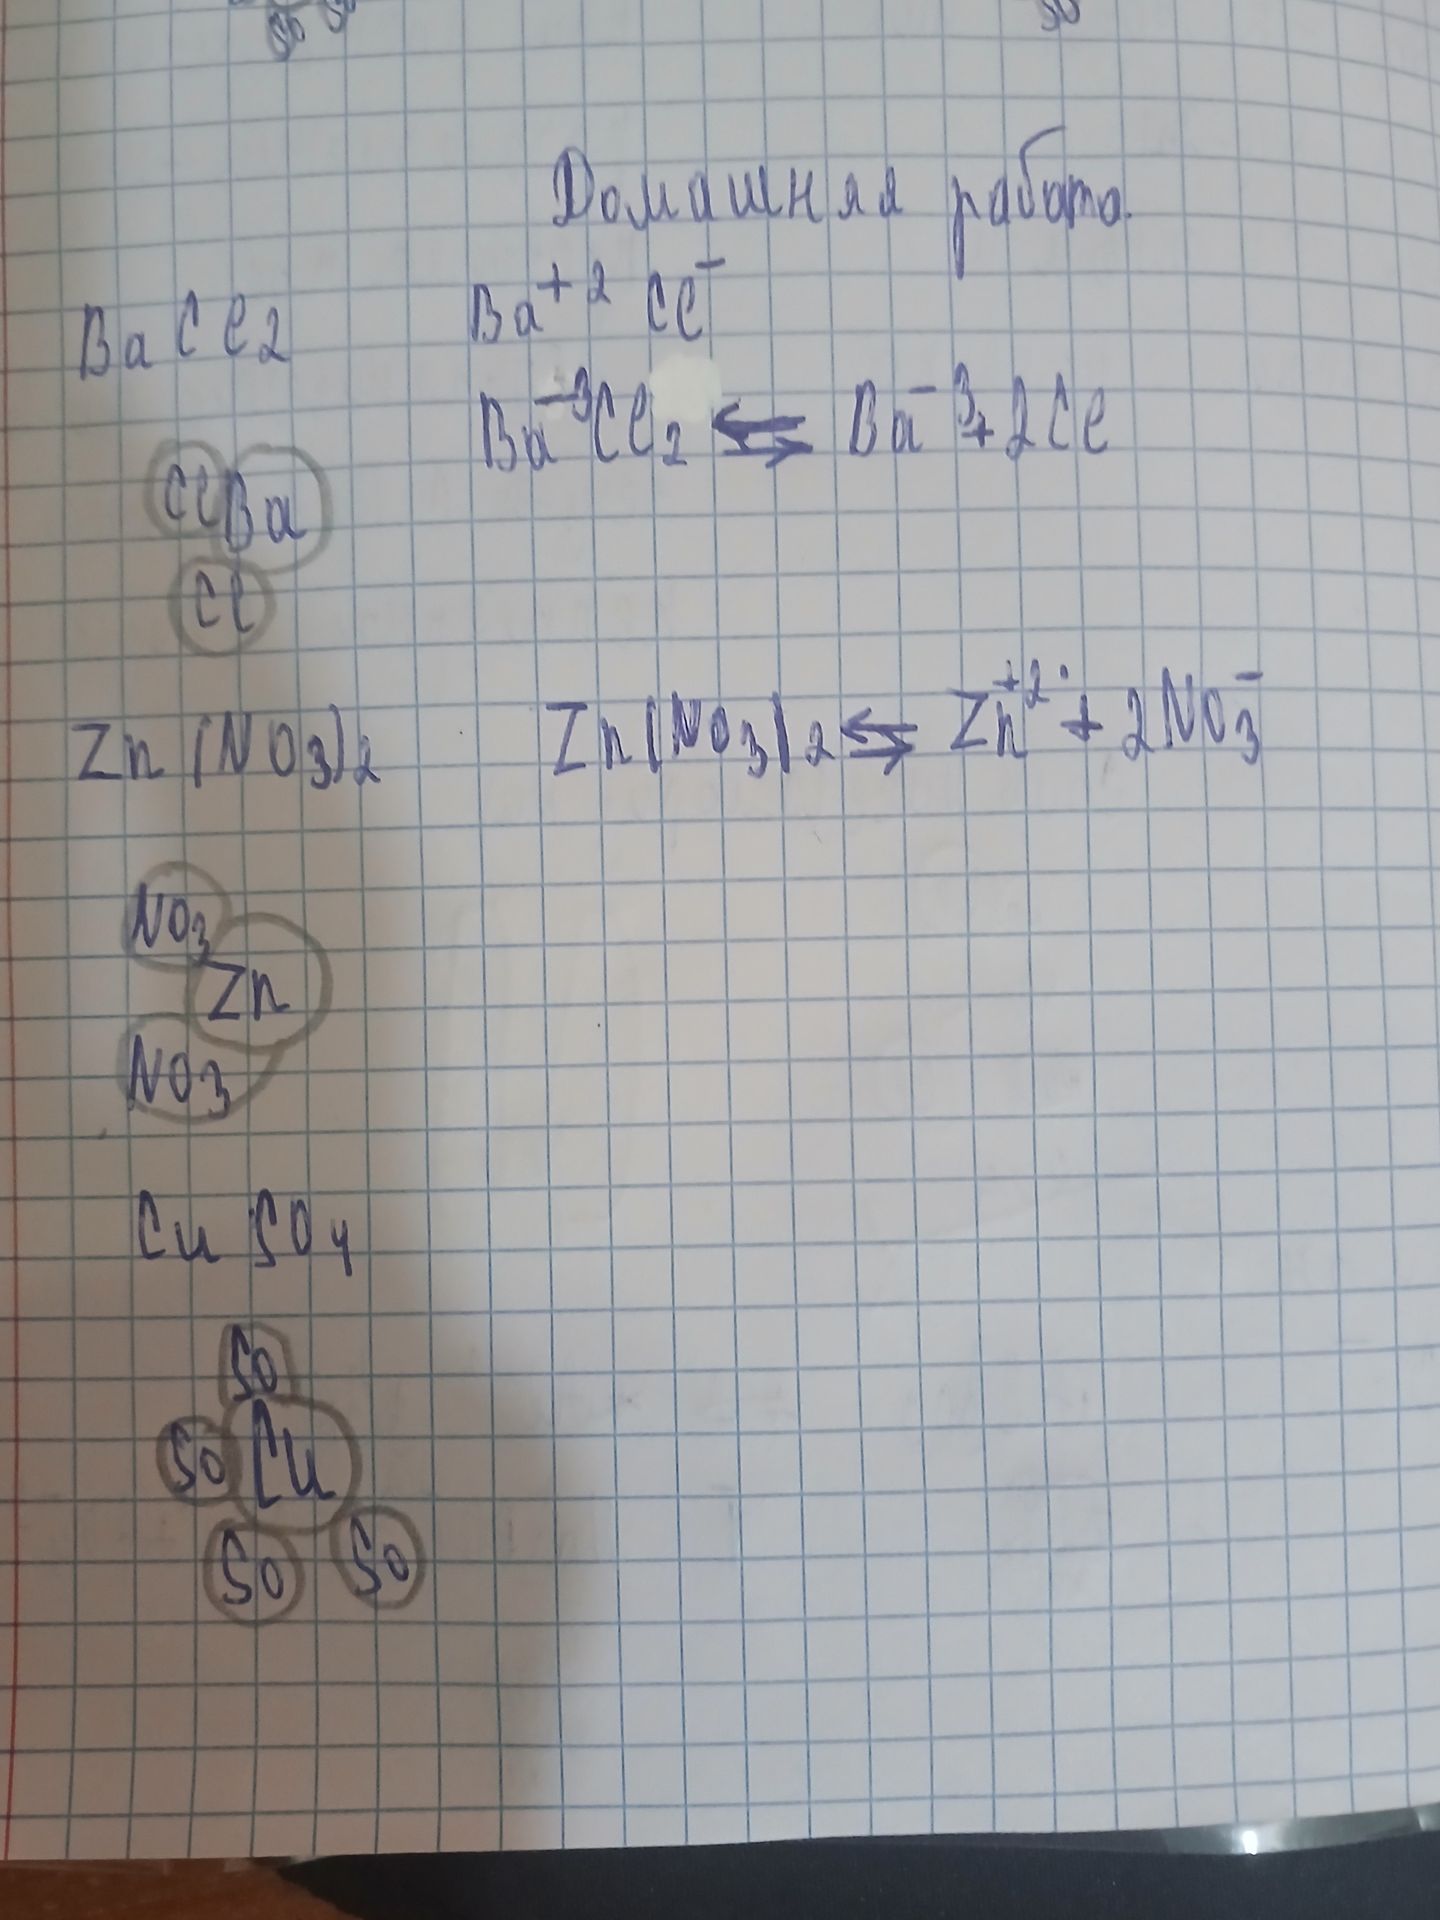 SO SO SO
Домашняя работа.
BaCl₂ Ba⁺² Cl⁻
Ba⁻³Cl₂ ⇆ Ba⁻³ + 2Cl
Cl Ba
Cl
Zn(NO₃)₂ Zn(NO₃)₂ ⇆ Zn⁺² + 2NO₃⁻
NO₃
Zn
NO₃
CuSO₄
SO
SO Cu
SO SO